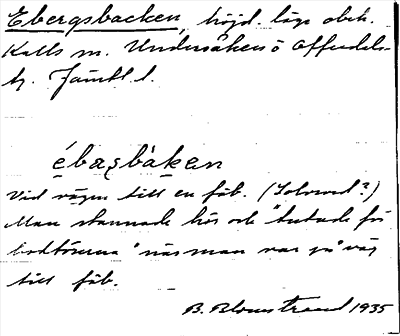 Ebergsbacken, höjd. läge obek.
Kalls sn. Undersåkers o Offerdals
tg. Jämtl. l.
ébaʂbàken
Vid vägen till en fäb. (Solvend?)
Man stannade här och "tutade för
bodtöserna" när man var på väg
till fäb.
B. Blomstrand 1935